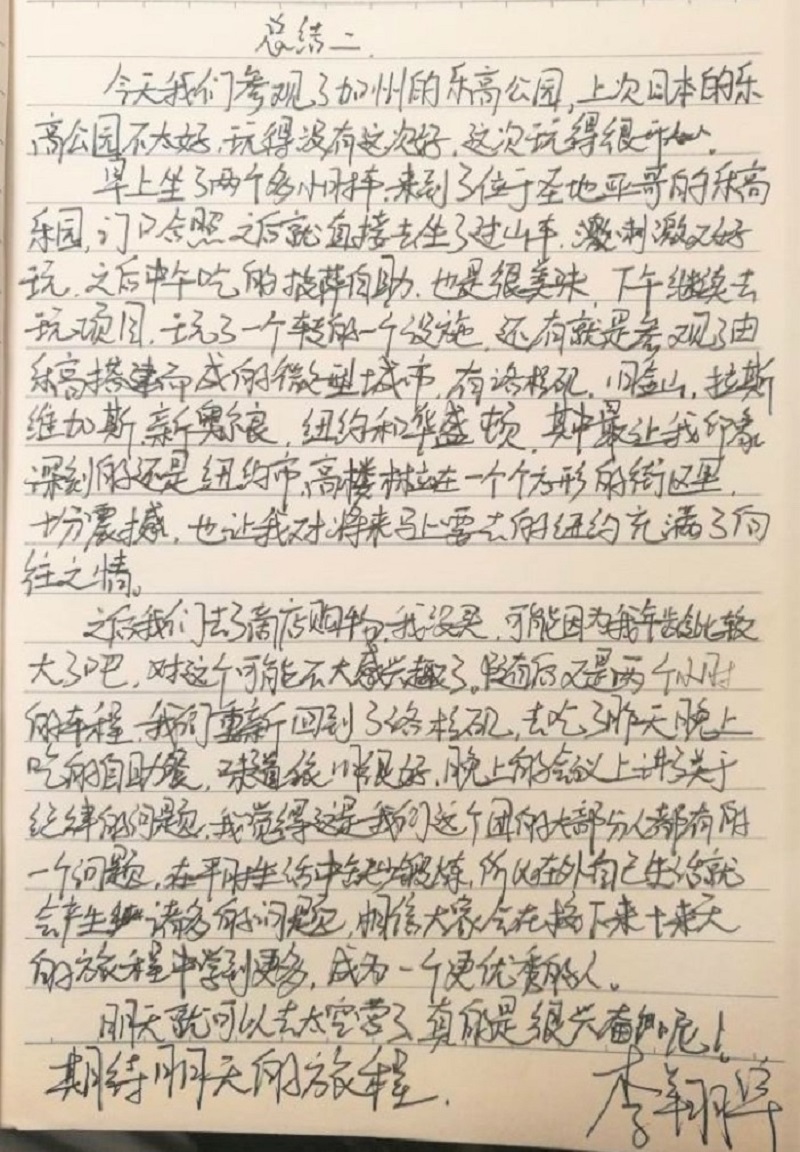 总结二.
今天我们参观了加州的乐高公园,上次日本的乐
高公园不太好,玩得没有这次好,这次玩得很开心.
早上坐了两个多小时车,来到了位于圣地亚哥的乐高
乐园,门口合照之后就直接去坐了过山车,刺激又好
玩,之后中午吃的披萨自助,也是很美味,下午继续去
玩项目,玩了一个转的一个设施,还有就是参观了由
乐高搭建而成的微型城市,有洛杉矶,旧金山,拉斯
维加斯,新奥尔良,纽约和华盛顿,其中最让我印象
深刻的还是纽约市,高楼林立在一个个方形的街区里,
十分震撼,也让我对将来马上要去的纽约充满了向
往之情。
之后我们去了商店购物,我没买,可能因为我年龄比较
大了吧,对这个可能不大感兴趣了。最后又是两个小时
的车程,我们重新回到了洛杉矶,去吃了昨天晚上
吃的自助餐,味道依旧很好,晚上的会议上讲了关于
纪律的问题,我觉得这是我们这个团的大部分人都有的
一个问题,在平时生活中缺少锻炼,所以在外自己生活就
会产生诸多的问题,相信大家会在接下来十来天
的旅程中学到更多,成为一个更优秀的人。
明天就可以去太空营了,真的是很兴奋呢!
期待明天的旅程.
李翔华